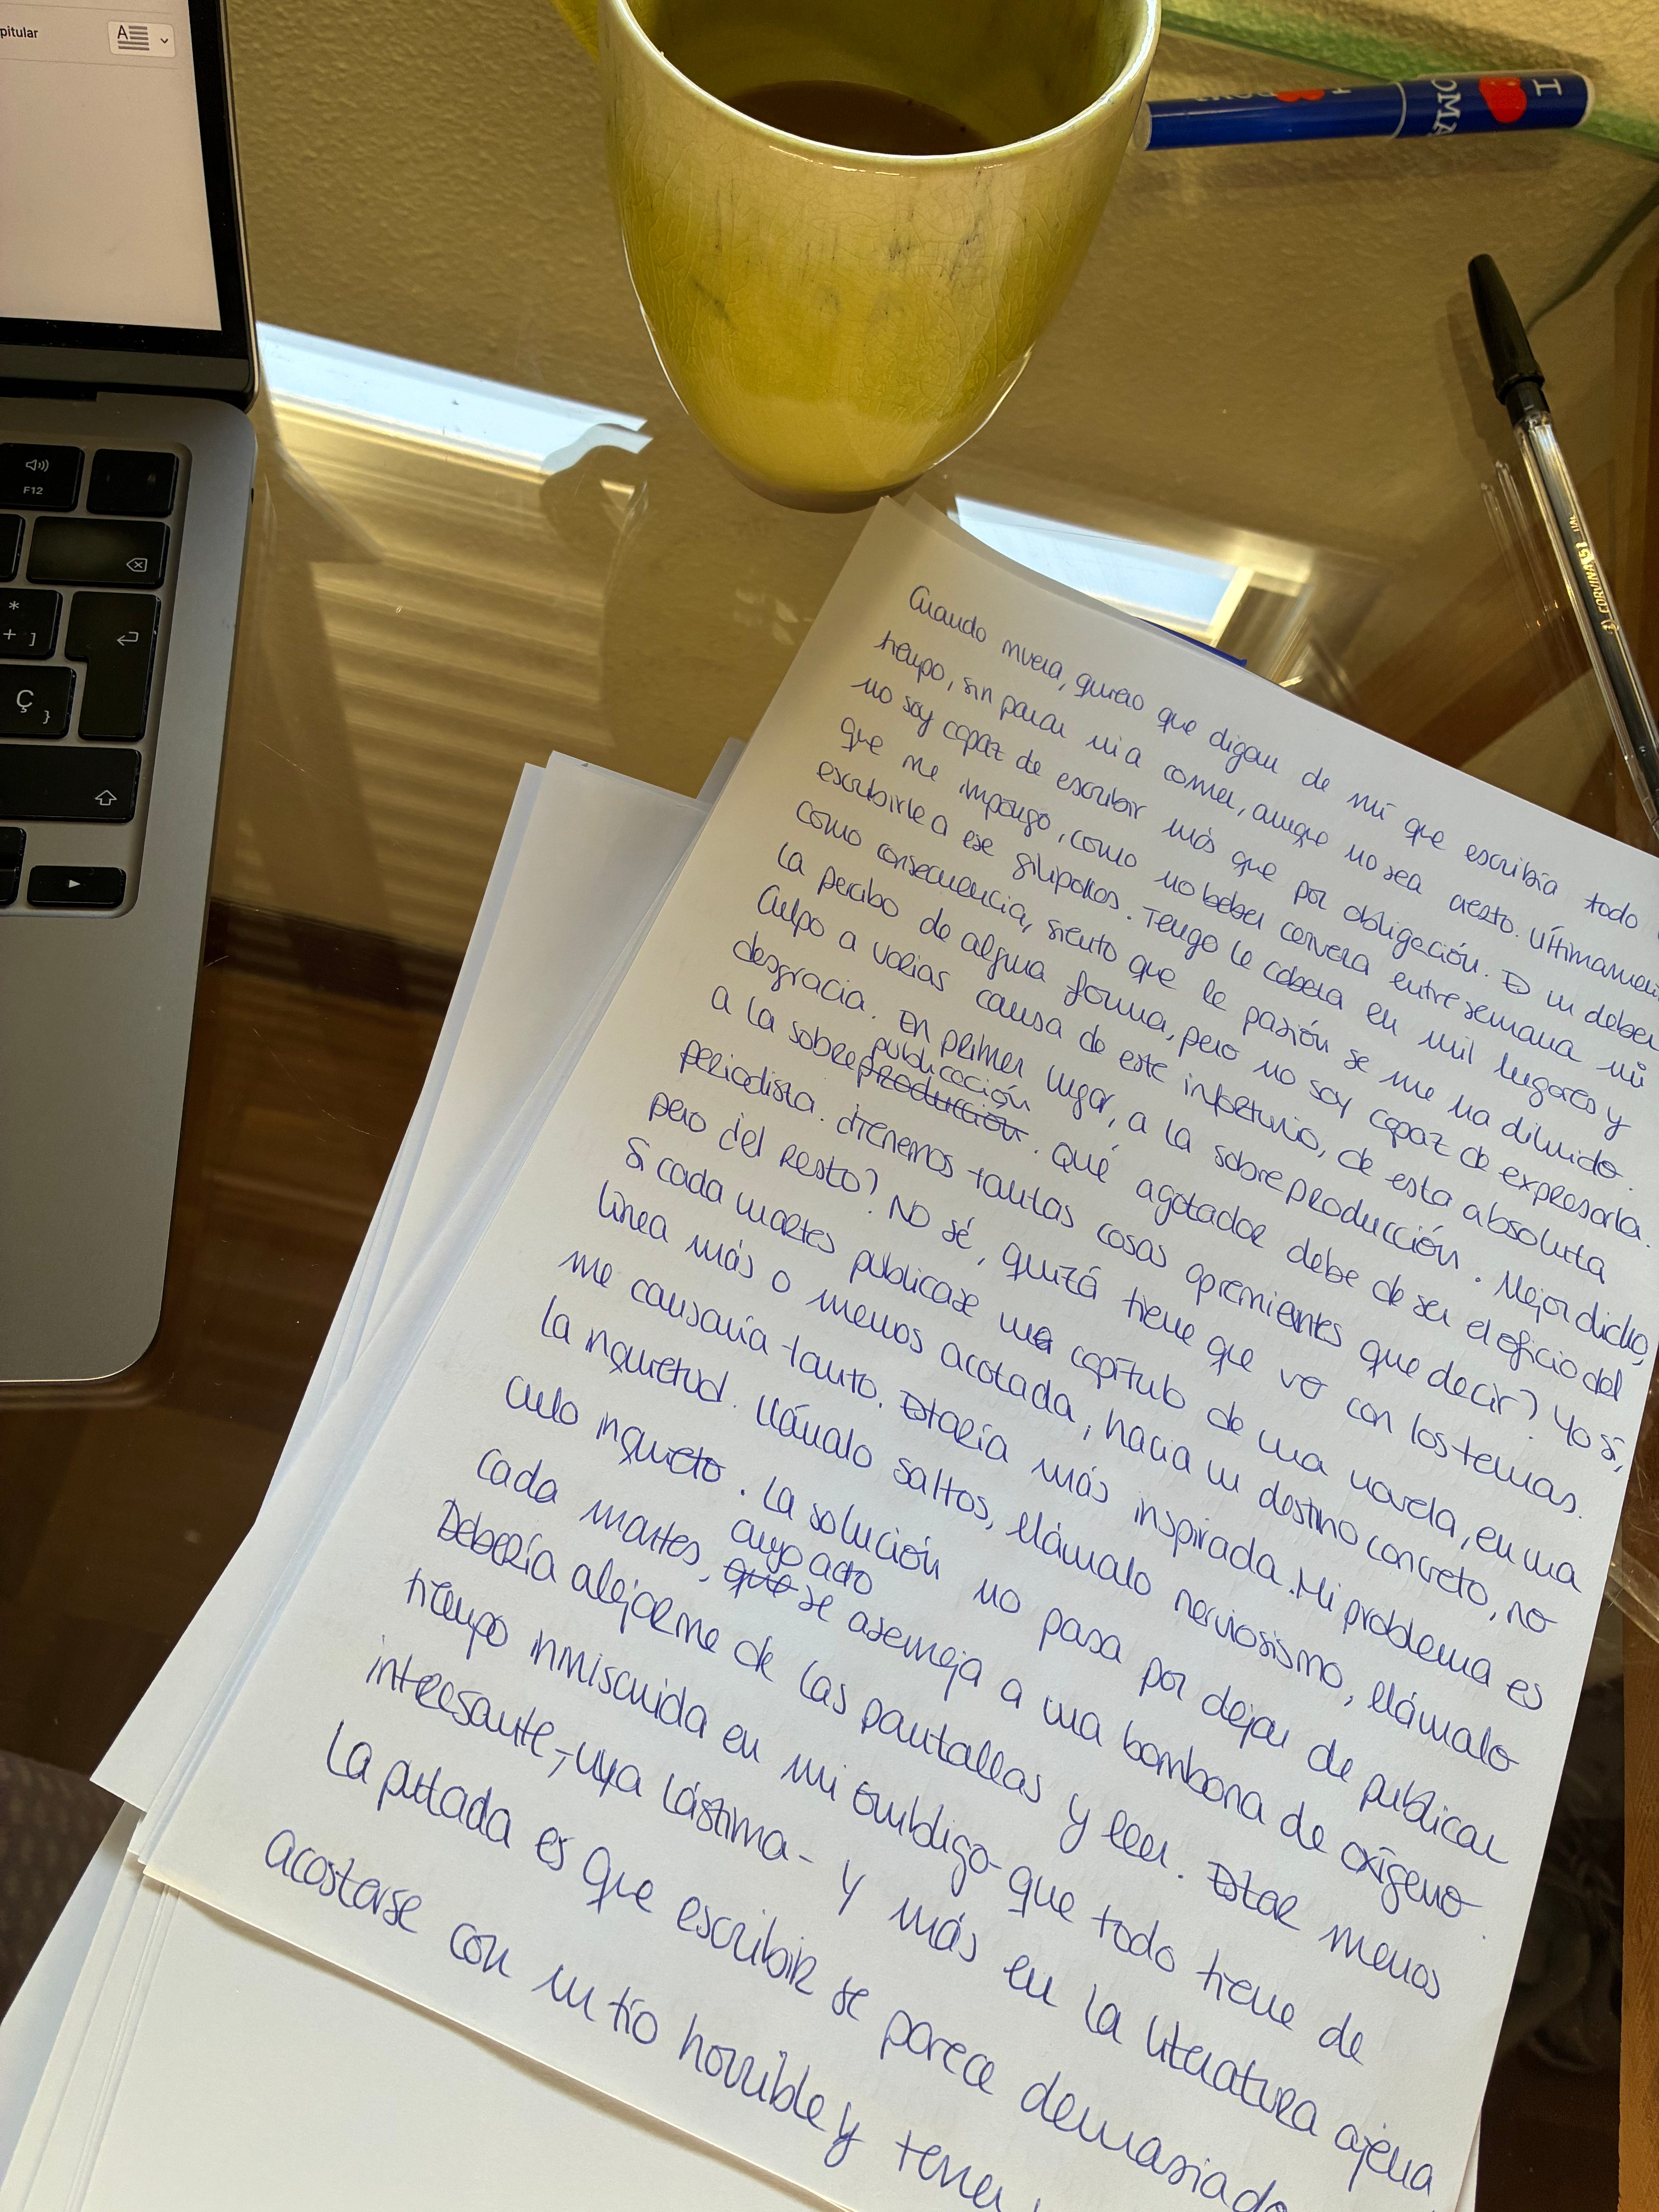 pitular
A
F12
*
+ ]
Ç }
I
OMA
I
CORVINA 51
Cuando muera, quiero que digan de mí que escribía todo
tiempo, sin parar ni a comer, aunque no sea cierto. Últimamen
no soy capaz de escribir más que por obligación. Es un deber
que me impongo, como no beber cerveza entre semana ni
escribirle a ese gilipollas. Tengo la cabeza en mil lugares y
como consecuencia, siento que la pasión se me ha diluido.
La percibo de alguna forma, pero no soy capaz de expresarla.
Culpo a varias causa de este infortunio, de esta absoluta
desgracia. En primer lugar, a la sobreproducción. Mejor dicho,
a la sobreproducción publicación. Qué agotador debe de ser el oficio del
periodista. ¿Tenemos tantas cosas apremiantes que decir? Yo sí,
pero ¿el resto? No sé, quizá tiene que ver con los temas.
Si cada martes publicase un capítulo de una novela, en una
línea más o menos acotada, hacia un destino concreto, no
me causaría tanto. Estaría más inspirada. Mi problema es
la inquietud. Llámalo saltos, llámalo nerviosismo, llámalo
culo inquieto. La solución no pasa por dejar de publicar
cada martes, que cuyo acto se asemeja a una bombona de oxígeno.
Debería alejarme de las pantallas y leer. Estar menos
tiempo inmiscuida en mi ombligo -que todo tiene de
interesante, -uya lástima- y más en la literatura ajena
La putada es que escribir se parece demasiado
acostarse con un tío horrible y tener